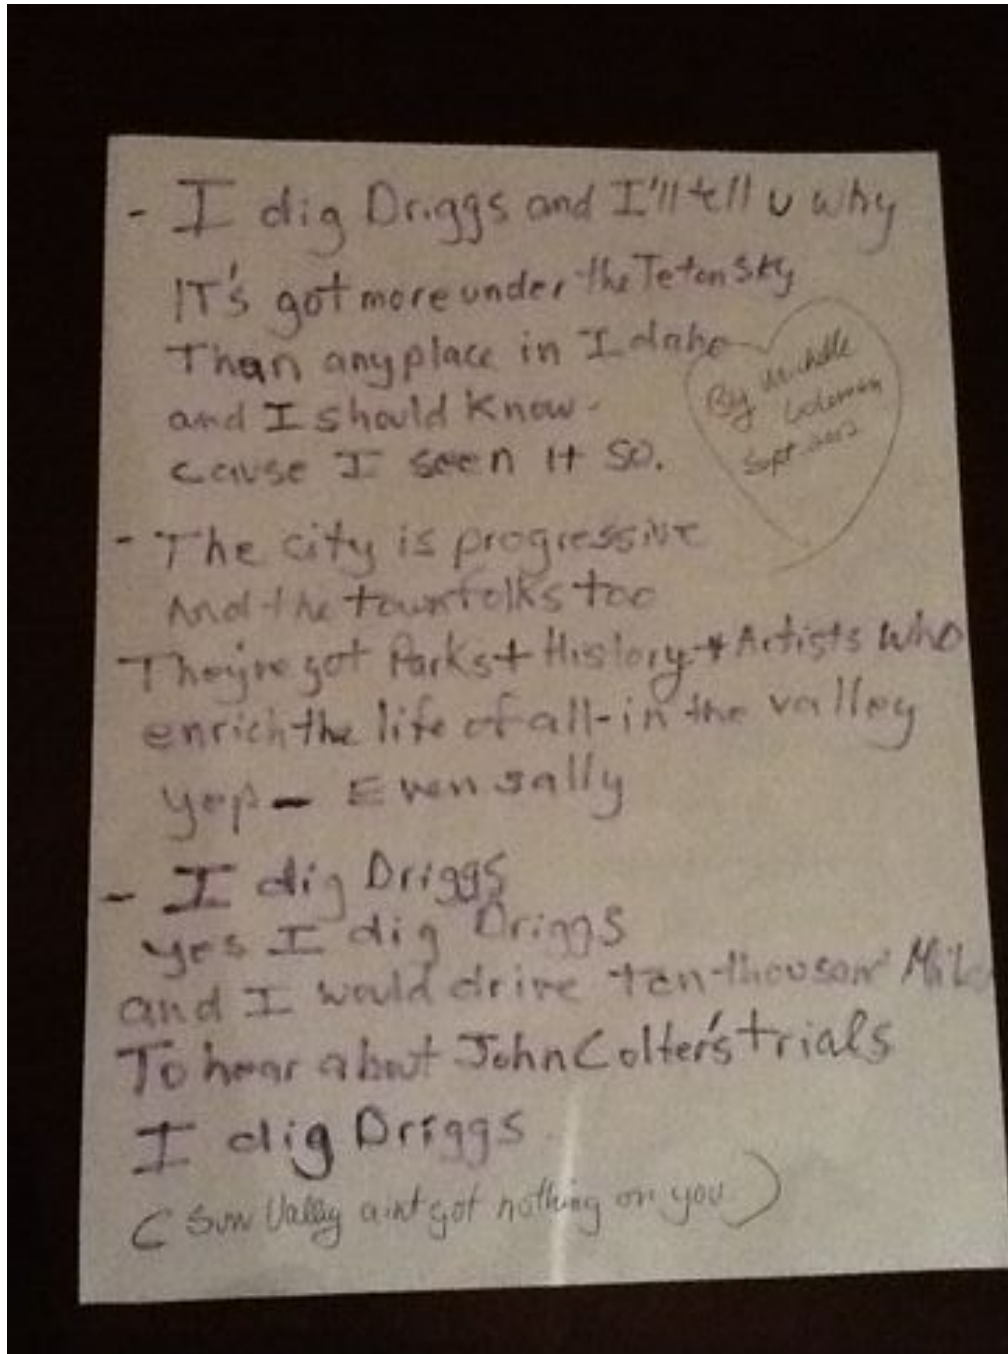 - I dig Driggs and I'll tell u why
IT's got more under the Teton Sky
Than anyplace in Idaho
and I should know -
cause I seen it so.
By Michelle
Coleman
Sept.
- The city is progressive
And the townfolks too
They're got Parks + History + Artists who
enrich the life of all - in the valley
yep - Even sally
- I dig Driggs
yes I dig Driggs
and I would drive ten-thousan' Mile
To hear about John Colter's trials
I dig Driggs.
(Sun Valley aint got nothing on you)